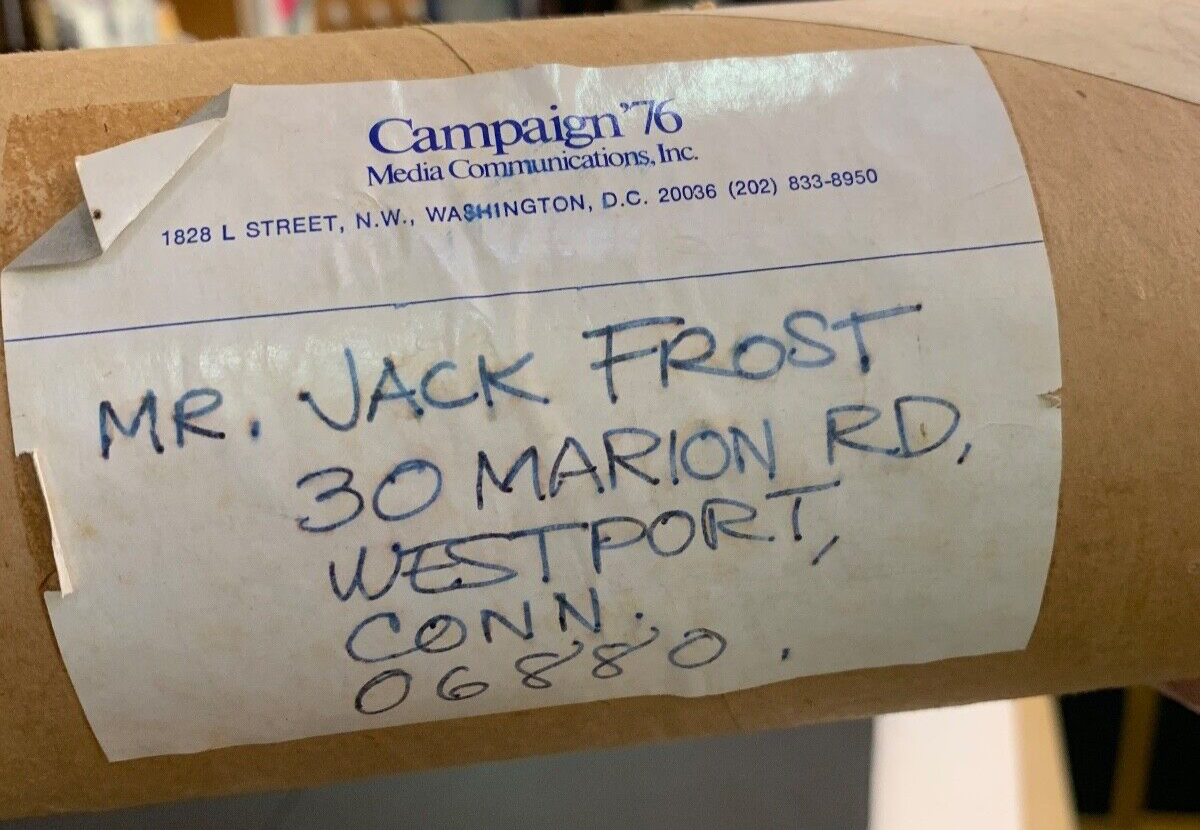 Campaign '76
Media Communications, Inc.
1828 L STREET, N.W., WASHINGTON, D.C. 20036 (202) 833-8950
MR. JACK FROST
30 MARION RD,
WESTPORT,
CONN.
06880.